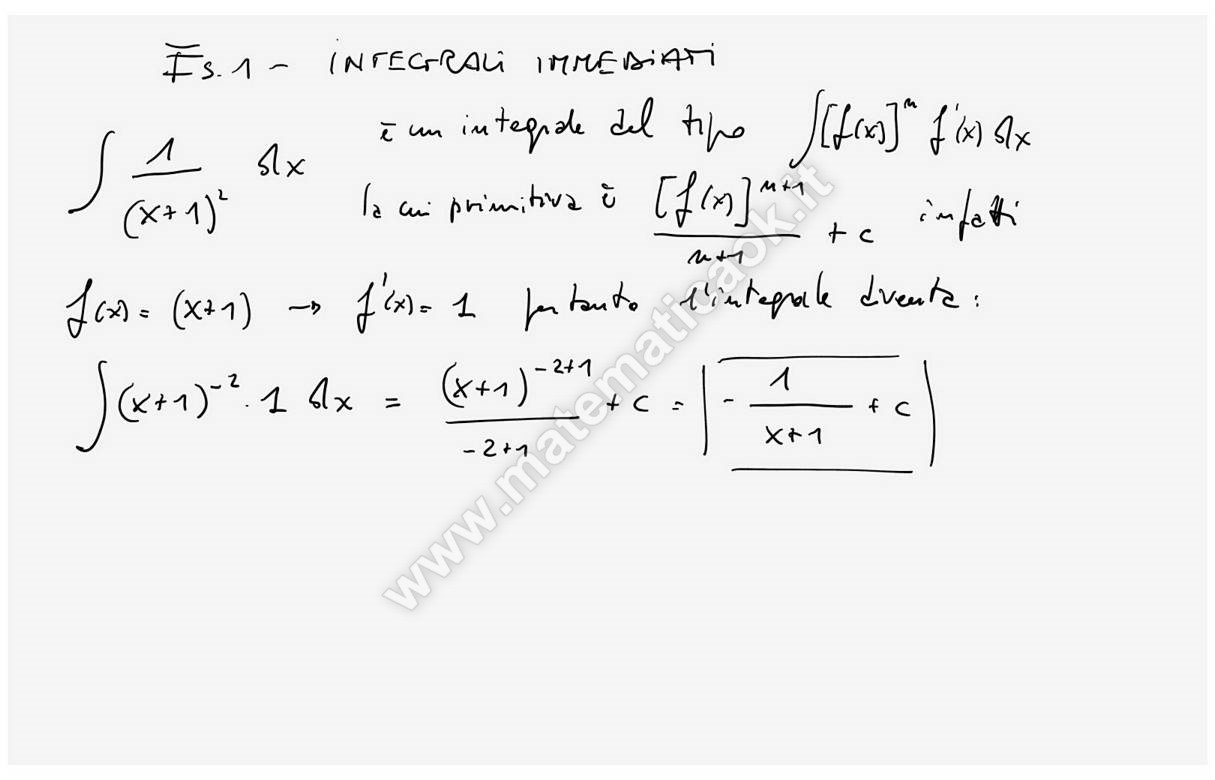 Es. 1 - INTEGRALI IMMEDIATI
∫ 1/(x+1)² dx è un integrale del tipo ∫[f(x)]ⁿ f'(x) dx
la cui primitiva è [f(x)]ⁿ⁺¹/(n+1) + c infatti
f(x) = (x+1) → f'(x) = 1 pertanto l'integrale diventa:
∫(x+1)⁻² · 1 dx = (x+1)⁻²⁺¹/(-2+1) + c = | - 1/(x+1) + c |
www.matematicaok.it